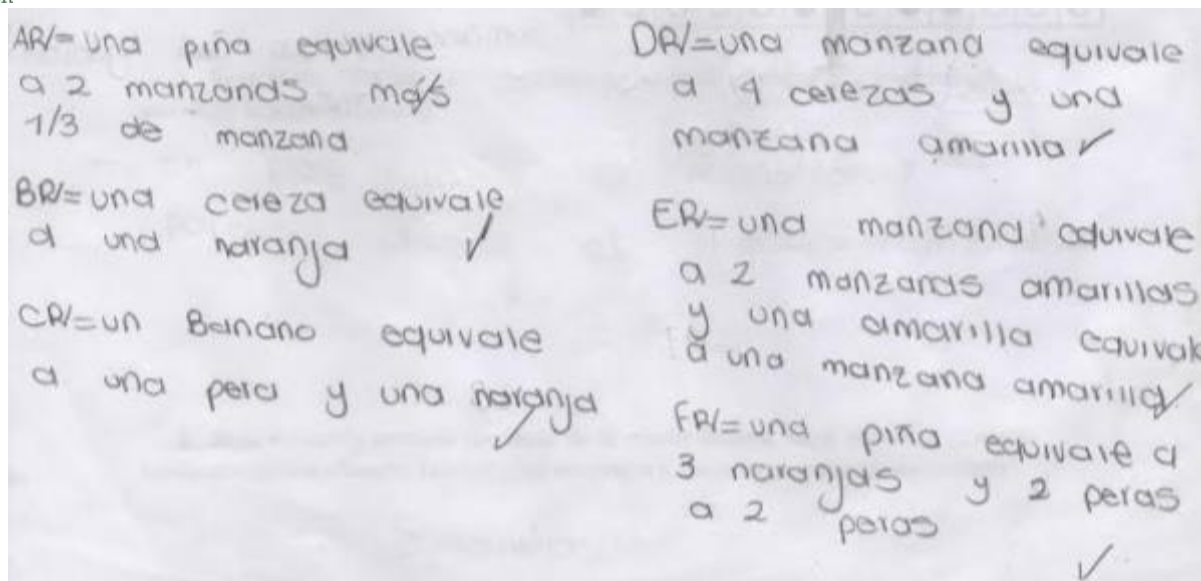 AR/= una piña equivale
a 2 manzanas más
1/3 de manzana
BR/= una cereza equivale
a una naranja ✓
CR/= un Banano equivale
a una pera y una naranja
✓
DR/= una manzana equivale
a 4 cerezas y una
manzana amarilla ✓
ER/= una manzana equivale
a 2 manzanas amarillas
y una amarilla equivale
a una manzana amarilla ✓
FR/= una piña equivale a
3 naranjas y 2 peras
a 2 peras
✓